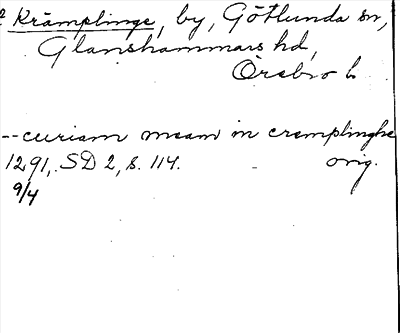 Krämplinge, by, Götlunda sn,
Glanshammars hd,
Örebro l.
-- curiam meam in cremplinghe
1291, SD 2, s. 114. orig.
9/4